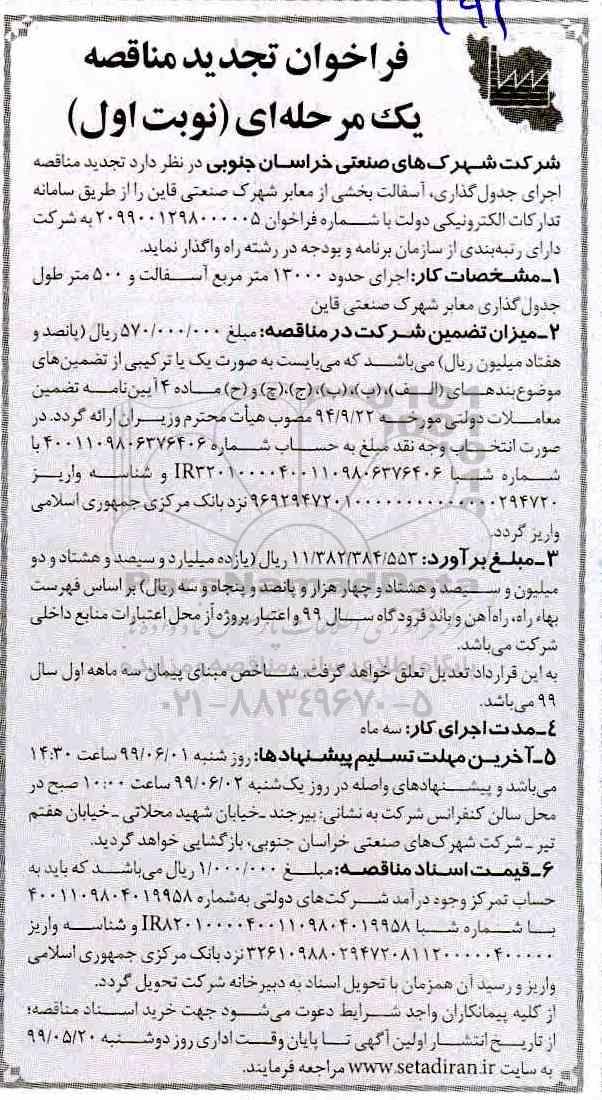 فراخوان تجدید مناقصه
یک مرحله‌ای (نوبت اول)
شرکت شهرک‌های صنعتی خراسان جنوبی در نظر دارد تجدید مناقصه
اجرای جدول‌گذاری، آسفالت بخشی از معابر شهرک صنعتی قاین را از طریق سامانه
تدارکات الکترونیکی دولت با شماره فراخوان ۲۰۹۹۰۰۱۲۹۸۰۰۰۰۰۵ به شرکت
دارای رتبه‌بندی از سازمان برنامه و بودجه در رشته راه واگذار نماید.
۱ـ مشخصات کار: اجرای حدود ۱۳۰۰۰ متر مربع آسفالت و ۵۰۰ متر طول
جدول‌گذاری معابر شهرک صنعتی قاین
۲ـ میزان تضمین شرکت در مناقصه: مبلغ ۵۷۰/۰۰۰/۰۰۰ ریال (پانصد و
هفتاد میلیون ریال) می‌باشد که می‌بایست به صورت یک یا ترکیبی از تضمین‌های
موضوع بندهای (الف)، (ب)، (پ)، (ج)، (چ) و (ح) ماده ۴ آیین‌نامه تضمین
معاملات دولتی مورخه ۹۴/۹/۲۲ مصوب هیأت محترم وزیران ارائه گردد. در
صورت انتخاب وجه نقد مبلغ به حساب شماره ۴۰۰۱۱۰۹۸۰۶۳۷۶۴۰۶ با
شماره شبا IR۳۲۰۱۰۰۰۰۴۰۰۱۱۰۹۸۰۶۳۷۶۴۰۶ و شناسه واریز
نزد بانک مرکزی جمهوری اسلامی
واریز گردد.
۳ـ مبلغ برآورد: ۱۱/۳۸۲/۳۸۴/۵۵۳ ریال (یازده میلیارد و سیصد و هشتاد و دو
میلیون و سیصد و هشتاد و چهار هزار و پانصد و پنجاه و سه ریال) بر اساس فهرست
بهاء راه، راه‌آهن و باند فرودگاه سال ۹۹ و اعتبار پروژه از محل اعتبارات منابع داخلی
شرکت می‌باشد.
به این قرارداد تعدیل تعلق خواهد گرفت. شاخص مبنای پیمان سه ماهه اول سال
۹۹ می‌باشد.
۴ـ مدت اجرای کار: سه ماه
۵ـ آخرین مهلت تسلیم پیشنهادها: روز شنبه ۹۹/۰۶/۰۱ ساعت ۱۴:۳۰
می‌باشد و پیشنهادهای واصله در روز یک‌شنبه ۹۹/۰۶/۰۲ ساعت ۱۰:۰۰ صبح در
محل سالن کنفرانس شرکت به نشانی: بیرجند ـ خیابان شهید محلاتی ـ خیابان هفتم
تیر ـ شرکت شهرک‌های صنعتی خراسان جنوبی، بازگشایی خواهد گردید.
۶ـ قیمت اسناد مناقصه: مبلغ ۱/۰۰۰/۰۰۰ ریال می‌باشد که باید به
حساب تمرکز وجوه درآمد شرکت‌های دولتی به‌شماره ۴۰۰۱۱۰۹۸۰۴۰۱۹۹۵۸
با شماره شبا IR۸۲۰۱۰۰۰۰۴۰۰۱۱۰۹۸۰۴۰۱۹۹۵۸ و شناسه واریز
۳۲۶۱۰۹۸۸۰۲۹۴۷۲۰۸۱۱۲۰۰۰۰۰۴۰۰۰۰۰ نزد بانک مرکزی جمهوری اسلامی
واریز و رسید آن همزمان با تحویل اسناد به دبیرخانه شرکت تحویل گردد.
از کلیه پیمانکاران واجد شرایط دعوت می‌شود جهت خرید اسناد مناقصه؛
از تاریخ انتشار اولین آگهی تا پایان وقت اداری روز دوشنبه ۹۹/۰۵/۲۰
به سایت www.setadiran.ir مراجعه فرمایند.
ParsNamadData
پایگاه اطلاع رسانی مناقصه و مزایده
۰۲۱-۸۸۳۴۹۶۷۰-۵